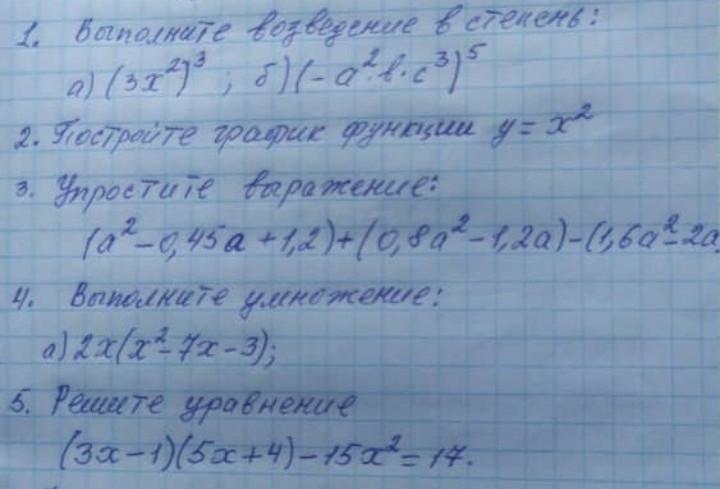 1. Выполните возведение в степень:
а) (3x²)³ ; б) (-a²·b·c³)⁵
2. Постройте график функции y = x²
3. Упростите выражение:
(a² - 0,45a + 1,2) + (0,8a² - 1,2a) - (1,6a² - 2a
4. Выполните умножение:
а) 2x(x² - 7x - 3);
5. Решите уравнение
(3x - 1)(5x + 4) - 15x² = 17.